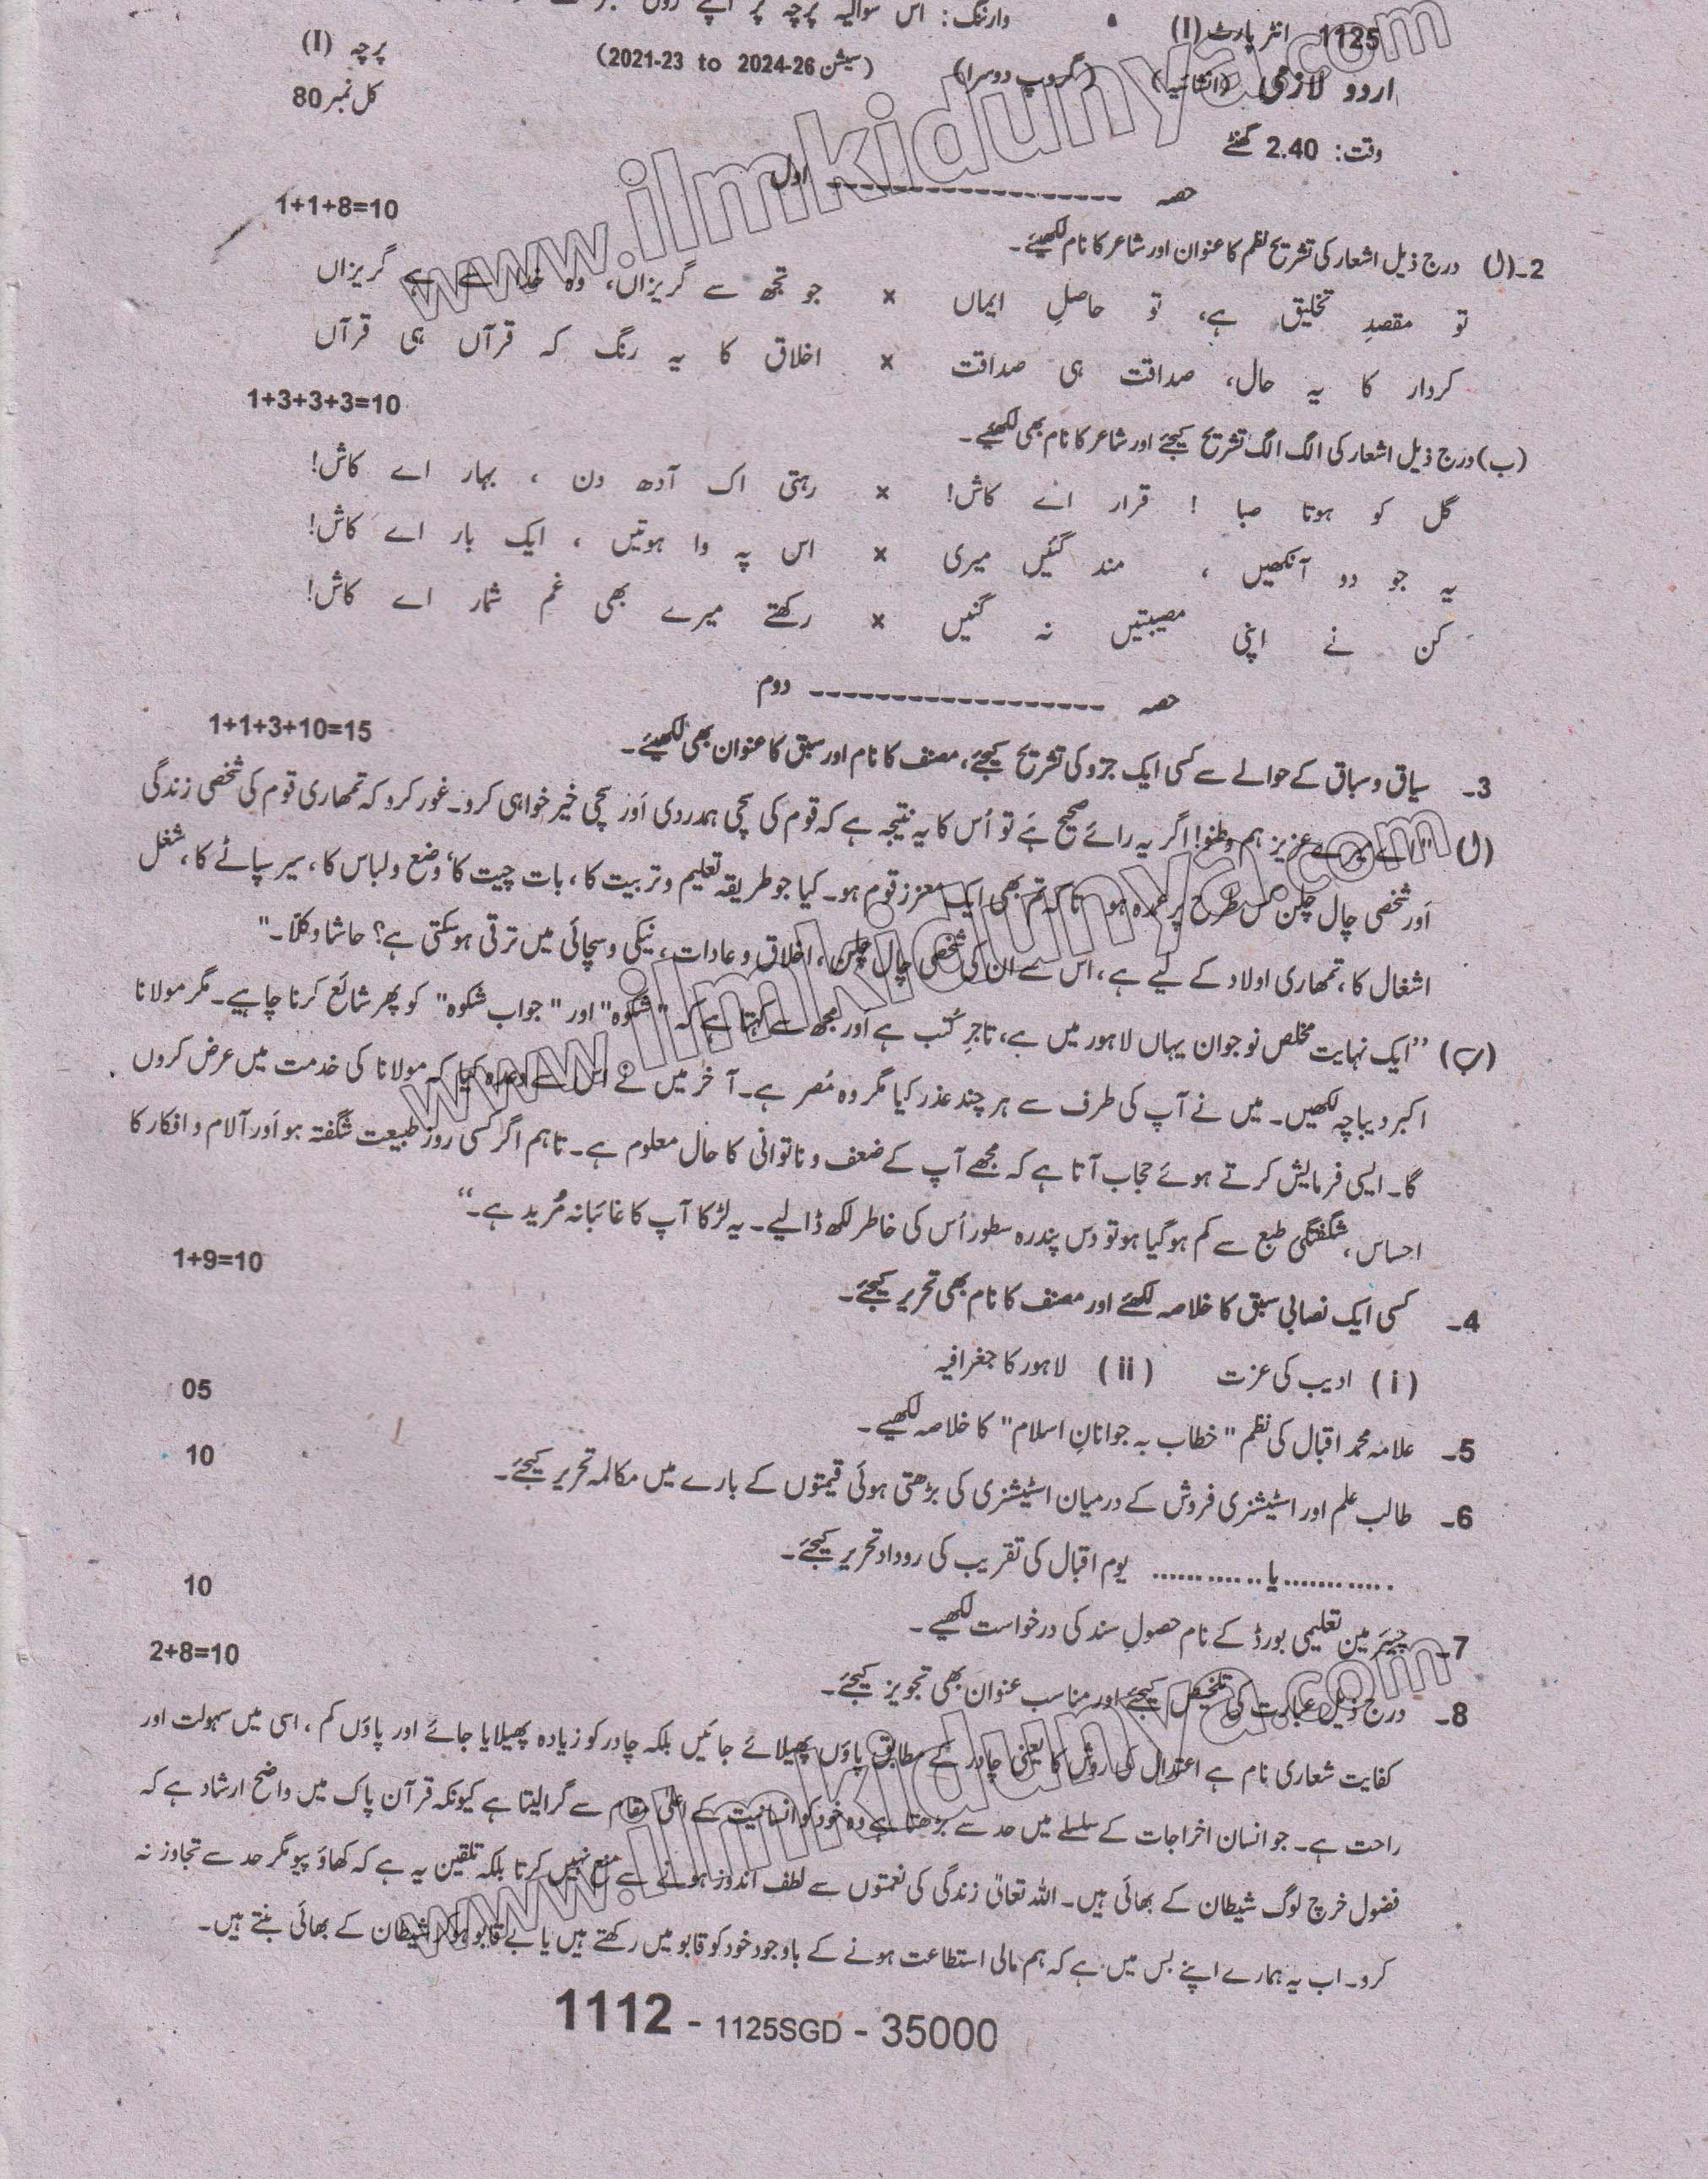 وارننگ: اس سوالیہ پرچہ پر اپنے رول نمبر
1125 انٹر پارٹ (I) پرچہ (I)
اردو لازمی (انشائیہ) (گروپ دوسرا) (سیشن 2021-23 to 2024-26) کل نمبر 80
وقت: 2.40 گھنٹے
حصہ ------------------ اول
2۔(ا) درج ذیل اشعار کی تشریح نظم کا عنوان اور شاعر کا نام لکھیئے۔ 1+1+8=10
تو مقصدِ تخلیق ہے، تو حاصلِ ایماں × جو تجھ سے گریزاں، وہ خدا سے ہے گریزاں
کردار کا یہ حال، صداقت ہی صداقت × اخلاق کا یہ رنگ کہ قرآں ہی قرآں
(ب) درج ذیل اشعار کی الگ الگ تشریح کیجئے اور شاعر کا نام بھی لکھیئے۔ 1+3+3+3=10
گل کو ہوتا صبا ! قرار اے کاش! × رہتی اک آدھ دن ، بہار اے کاش!
یہ جو دو آنکھیں ، مند گئیں میری × اس پہ وا ہوتیں ، ایک بار اے کاش!
کن نے اپنی مصیبتیں نہ گنیں × رکھتے میرے بھی غم شمار اے کاش!
حصہ ------------------ دوم
3۔ سیاق و سباق کے حوالے سے کسی ایک جزو کی تشریح کیجئے، مصنف کا نام اور سبق کا عنوان بھی لکھیئے۔ 1+1+3+10=15
(ا) "اے میرے عزیز ہم وطنو! اگر یہ رائے صحیح ہے تو اُس کا یہ نتیجہ ہے کہ قوم کی سچی ہمدردی اَور سچی خیر خواہی کرو۔ غور کرو کہ تمھاری قوم کی شخصی زندگی
اَور شخصی چال چلن کس طرح پر عمدہ ہو تا کہ تم بھی ایک معزز قوم ہو۔ کیا جو طریقہ تعلیم و تربیت کا، بات چیت کا، وضع و لباس کا، سیر سپاٹے کا، شغل
اشغال کا، تمھاری اولاد کے لیے ہے، اس سے ان کی شخصی چال چلن، اخلاق و عادات، نیکی و سچائی میں ترقی ہو سکتی ہے؟ حاشا و کلّا۔"
(ب) ’’ایک نہایت مخلص نوجوان یہاں لاہور میں ہے، تاجرِ کُتب ہے اور مجھ سے کہتا ہے کہ "شکوہ" اور "جواب شکوہ" کو پھر شائع کرنا چاہیے۔ مگر مولانا
اکبر دیباچہ لکھیں۔ میں نے آپ کی طرف سے ہر چند عذر کیا مگر وہ مُصر ہے۔ آخر میں نے اس سے وعدہ کیا کہ مولانا کی خدمت میں عرض کروں
گا۔ ایسی فرمایش کرتے ہوئے حجاب آتا ہے کہ مجھے آپ کے ضعف و ناتوانی کا حال معلوم ہے۔ تاہم اگر کسی روز طبیعت شگفتہ ہو اَور آلام و افکار کا
احساس، شگفتگی طبع سے کم ہو گیا ہو تو دس پندرہ سطور اُس کی خاطر لکھ ڈالیے۔ یہ لڑکا آپ کا غائبانہ مُرید ہے۔‘‘
4۔ کسی ایک نصابی سبق کا خلاصہ لکھئے اور مصنف کا نام بھی تحریر کیجئے۔ 1+9=10
(i) ادیب کی عزت (ii) لاہور کا جغرافیہ
5۔ علامہ محمد اقبال کی نظم "خطاب بہ جوانانِ اسلام" کا خلاصہ لکھیے۔ 05
6۔ طالب علم اور اسٹیشنری فروش کے درمیان اسٹیشنری کی بڑھتی ہوئی قیمتوں کے بارے میں مکالمہ تحریر کیجئے۔ 10
............یا............ یوم اقبال کی تقریب کی روداد تحریر کیجئے۔
7۔ چیئرمین تعلیمی بورڈ کے نام حصولِ سند کی درخواست لکھیے۔ 10
8۔ درج ذیل عبارت کی تلخیص کیجئے اور مناسب عنوان بھی تجویز کیجئے۔ 2+8=10
کفایت شعاری نام ہے اعتدال کی روش کا یعنی چادر کے مطابق پاؤں پھیلائے جائیں بلکہ چادر کو زیادہ پھیلایا جائے اور پاؤں کم، اسی میں سہولت اور
راحت ہے۔ جو انسان اخراجات کے سلسلے میں حد سے بڑھتا ہے وہ خود کو انسانیت کے اعلیٰ مقام سے گرا لیتا ہے کیونکہ قرآن پاک میں واضح ارشاد ہے کہ
فضول خرچ لوگ شیطان کے بھائی ہیں۔ اللہ تعالیٰ زندگی کی نعمتوں سے لطف اندوز ہونے سے منع نہیں کرتا بلکہ تلقین یہ ہے کہ کھاؤ پیو مگر حد سے تجاوز نہ
کرو۔ اب یہ ہمارے اپنے بس میں ہے کہ ہم مالی استطاعت ہونے کے باوجود خود کو قابو میں رکھتے ہیں یا بے قابو ہو کر شیطان کے بھائی بنتے ہیں۔
1112 - 1125SGD - 35000
www.ilmkidunya.com
www.ilmkidunya.com
www.ilmkidunya.com